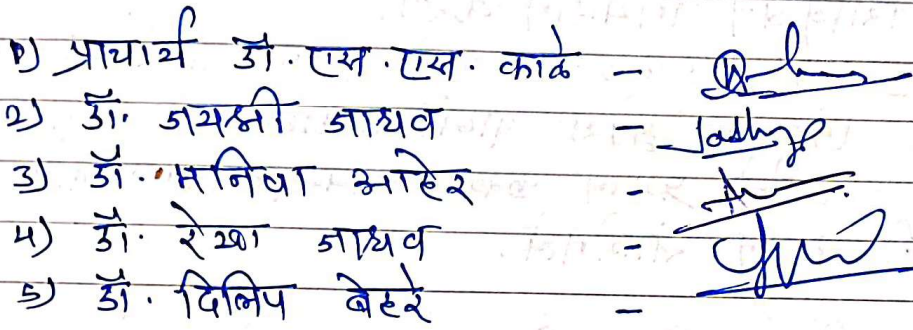 १) प्राचार्य डॉ. एस. एस. काळे -
२) डॉ. जयश्री जाधव - Jadhav
३) डॉ. मनिषा आहेर -
४) डॉ. रेखा जाधव -
५) डॉ. दिलिप बेहरे -